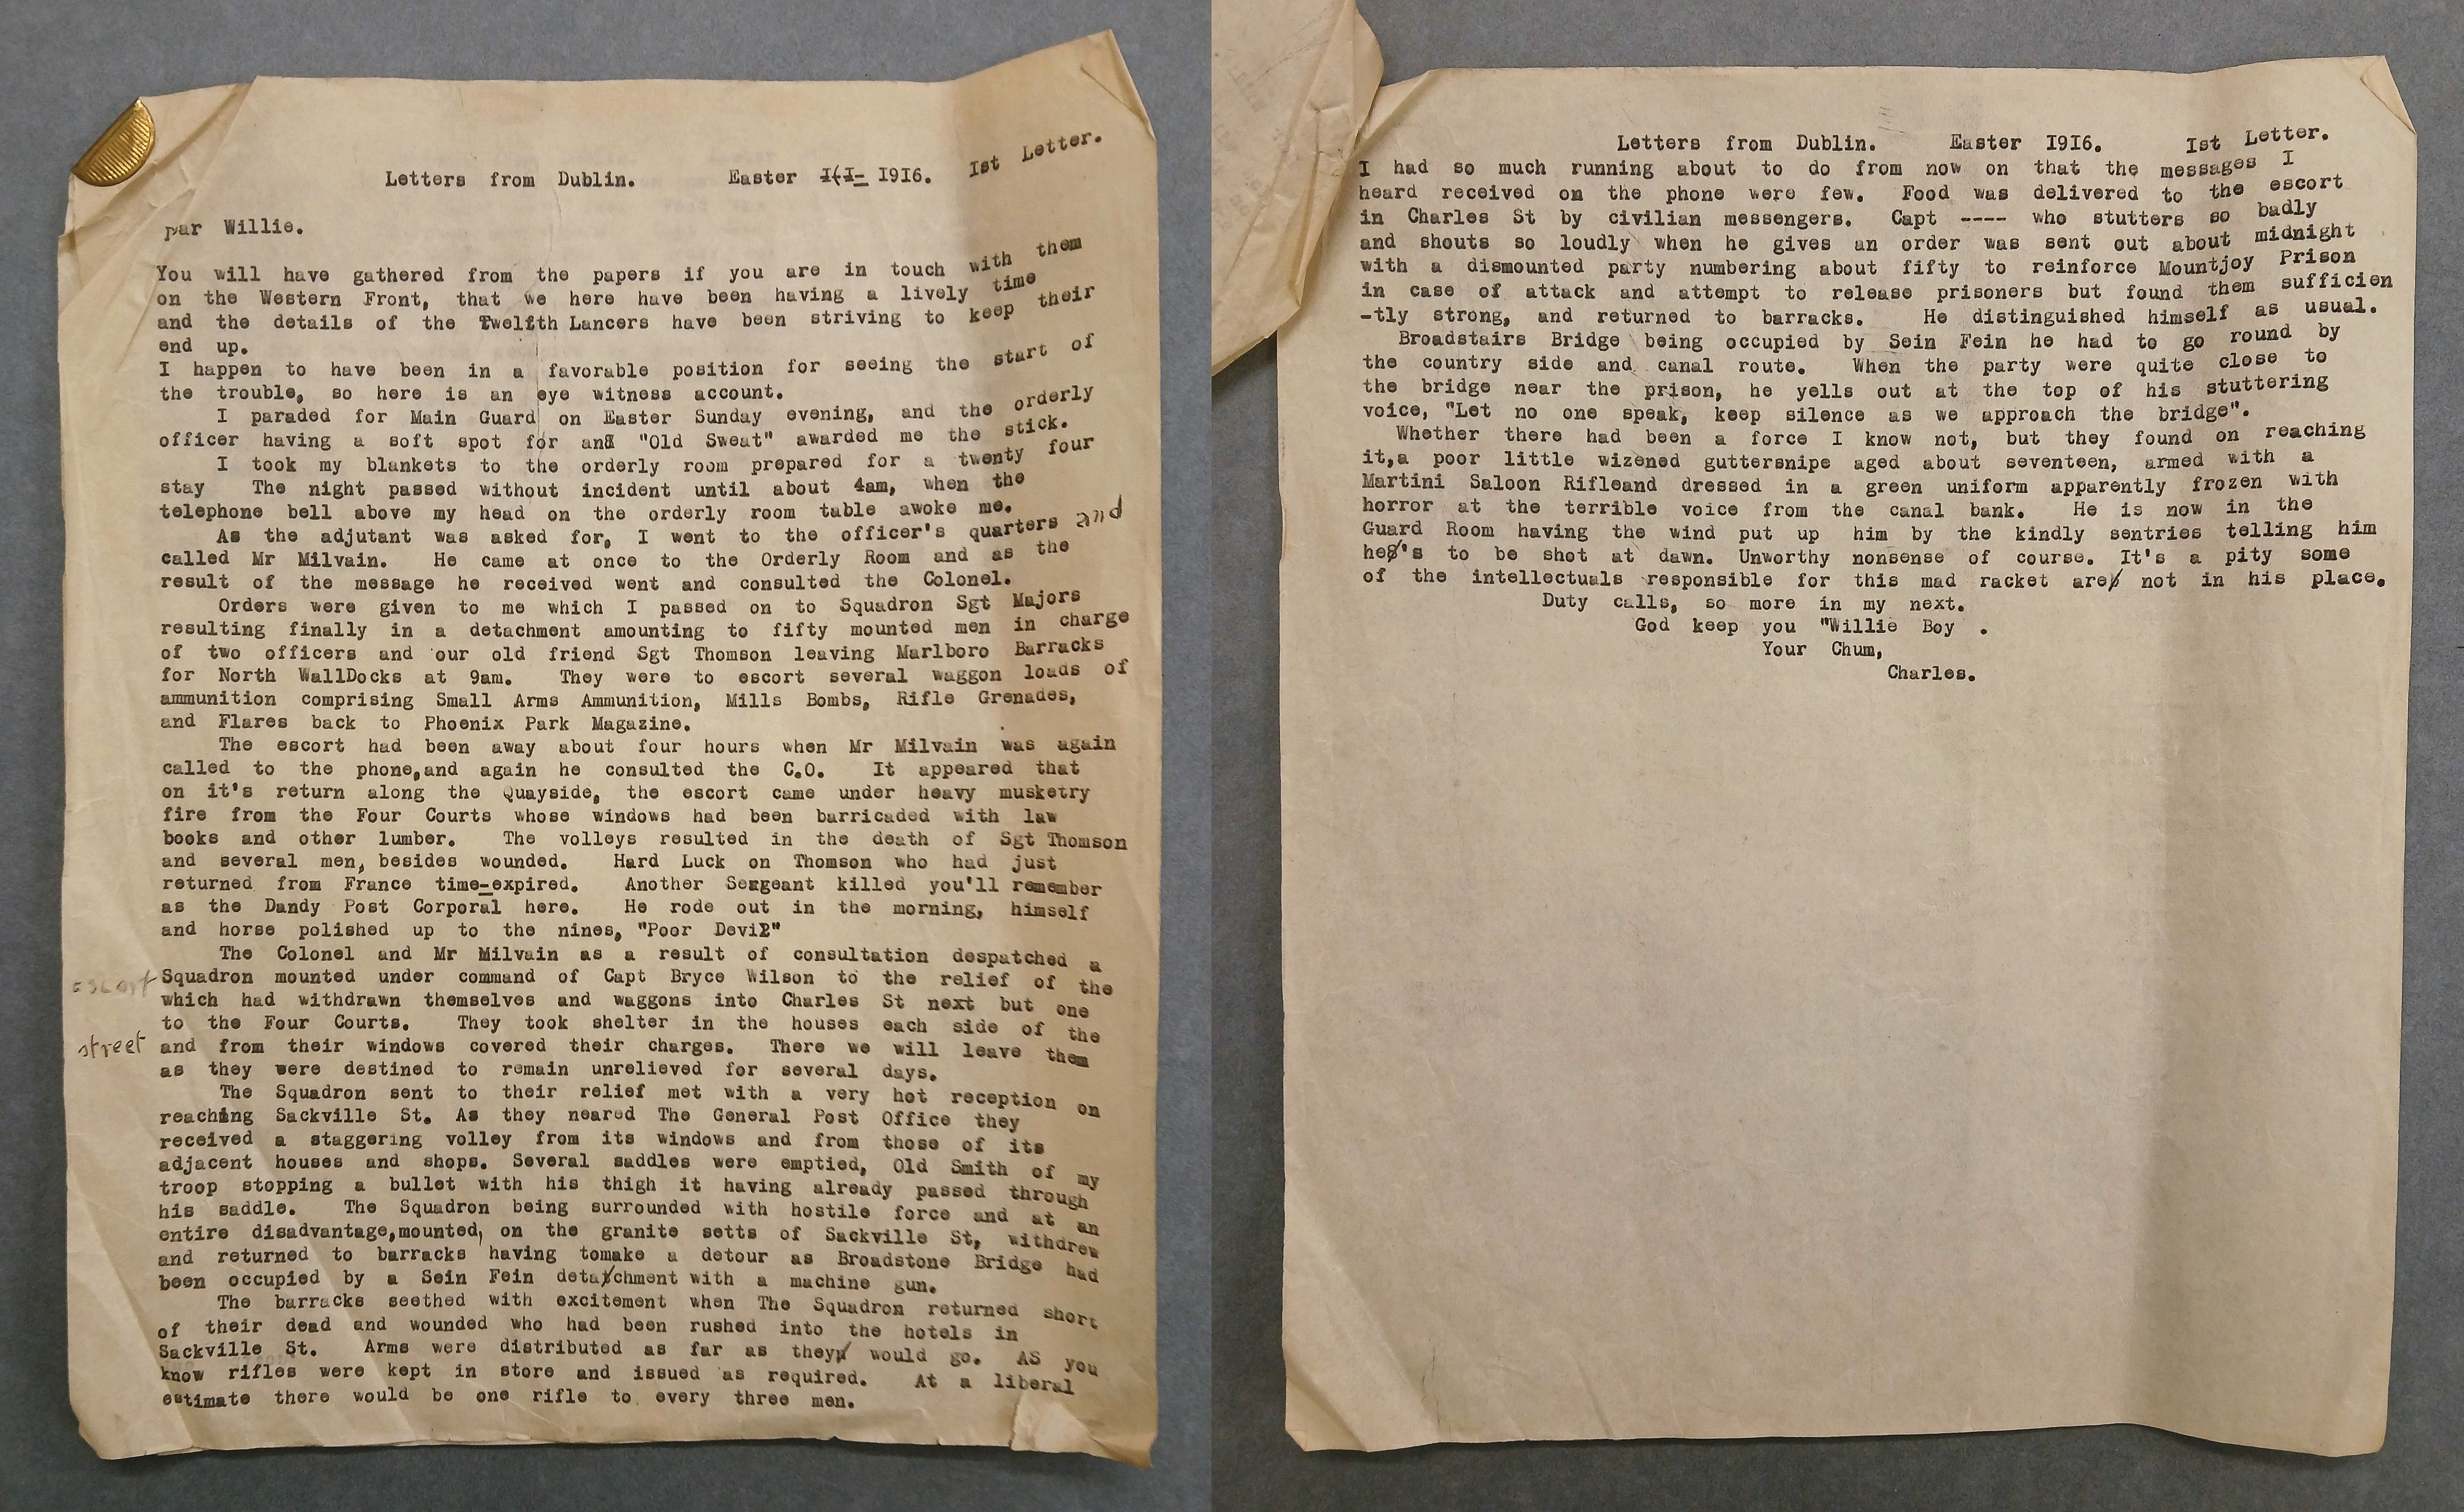 Letters from Dublin. Easter 1916. 1st Letter.
par Willie.
You will have gathered from the papers if you are in touch with them
on the Western Front, that we here have been having a lively time
and the details of the Twelfth Lancers have been striving to keep their
end up.
I happen to have been in a favorable position for seeing the start of
the trouble, so here is an eye witness account.
I paraded for Main Guard on Easter Sunday evening, and the orderly
officer having a soft spot for an "Old Sweat" awarded me the stick.
I took my blankets to the orderly room prepared for a twenty four
stay The night passed without incident until about 4am, when the
telephone bell above my head on the orderly room table awoke me.
As the adjutant was asked for, I went to the officer's quarters and
called Mr Milvain. He came at once to the Orderly Room and as the
result of the message he received went and consulted the Colonel.
Orders were given to me which I passed on to Squadron Sgt Majors
resulting finally in a detachment amounting to fifty mounted men in charge
of two officers and our old friend Sgt Thomson leaving Marlboro Barracks
for North WallDocks at 9am. They were to escort several waggon loads of
ammunition comprising Small Arms Ammunition, Mills Bombs, Rifle Grenades,
and Flares back to Phoenix Park Magazine.
The escort had been away about four hours when Mr Milvain was again
called to the phone,and again he consulted the C.O. It appeared that
on it's return along the Quayside, the escort came under heavy musketry
fire from the Four Courts whose windows had been barricaded with law
books and other lumber. The volleys resulted in the death of Sgt Thomson
and several men, besides wounded. Hard Luck on Thomson who had just
returned from France time-expired. Another Sergeant killed you'll remember
as the Dandy Post Corporal here. He rode out in the morning, himself
and horse polished up to the nines, "Poor Devil"
The Colonel and Mr Milvain as a result of consultation despatched a
escort Squadron mounted under command of Capt Bryce Wilson to the relief of the
which had withdrawn themselves and waggons into Charles St next but one
to the Four Courts. They took shelter in the houses each side of the
street and from their windows covered their charges. There we will leave them
as they were destined to remain unrelieved for several days.
The Squadron sent to their relief met with a very hot reception on
reaching Sackville St. As they neared The General Post Office they
received a staggering volley from its windows and from those of its
adjacent houses and shops. Several saddles were emptied, Old Smith of my
troop stopping a bullet with his thigh it having already passed through
his saddle. The Squadron being surrounded with hostile force and at an
entire disadvantage,mounted, on the granite setts of Sackville St, withdrew
and returned to barracks having tomake a detour as Broadstone Bridge had
been occupied by a Sein Fein detachment with a machine gun.
The barracks seethed with excitement when The Squadron returned short
of their dead and wounded who had been rushed into the hotels in
Sackville St. Arms were distributed as far as they would go. AS you
know rifles were kept in store and issued as required. At a liberal
estimate there would be one rifle to every three men.
Letters from Dublin. Easter 1916. 1st Letter.
I had so much running about to do from now on that the messages I
heard received on the phone were few. Food was delivered to the escort
in Charles St by civilian messengers. Capt ---- who stutters so badly
and shouts so loudly when he gives an order was sent out about midnight
with a dismounted party numbering about fifty to reinforce Mountjoy Prison
in case of attack and attempt to release prisoners but found them sufficien
-tly strong, and returned to barracks. He distinguished himself as usual.
Broadstairs Bridge being occupied by Sein Fein he had to go round by
the country side and canal route. When the party were quite close to
the bridge near the prison, he yells out at the top of his stuttering
voice, "Let no one speak, keep silence as we approach the bridge".
Whether there had been a force I know not, but they found on reaching
it,a poor little wizened guttersnipe aged about seventeen, armed with a
Martini Saloon Rifleand dressed in a green uniform apparently frozen with
horror at the terrible voice from the canal bank. He is now in the
Guard Room having the wind put up him by the kindly sentries telling him
he's to be shot at dawn. Unworthy nonsense of course. It's a pity some
of the intellectuals responsible for this mad racket are not in his place.
Duty calls, so more in my next.
God keep you "Willie Boy .
Your Chum,
Charles.